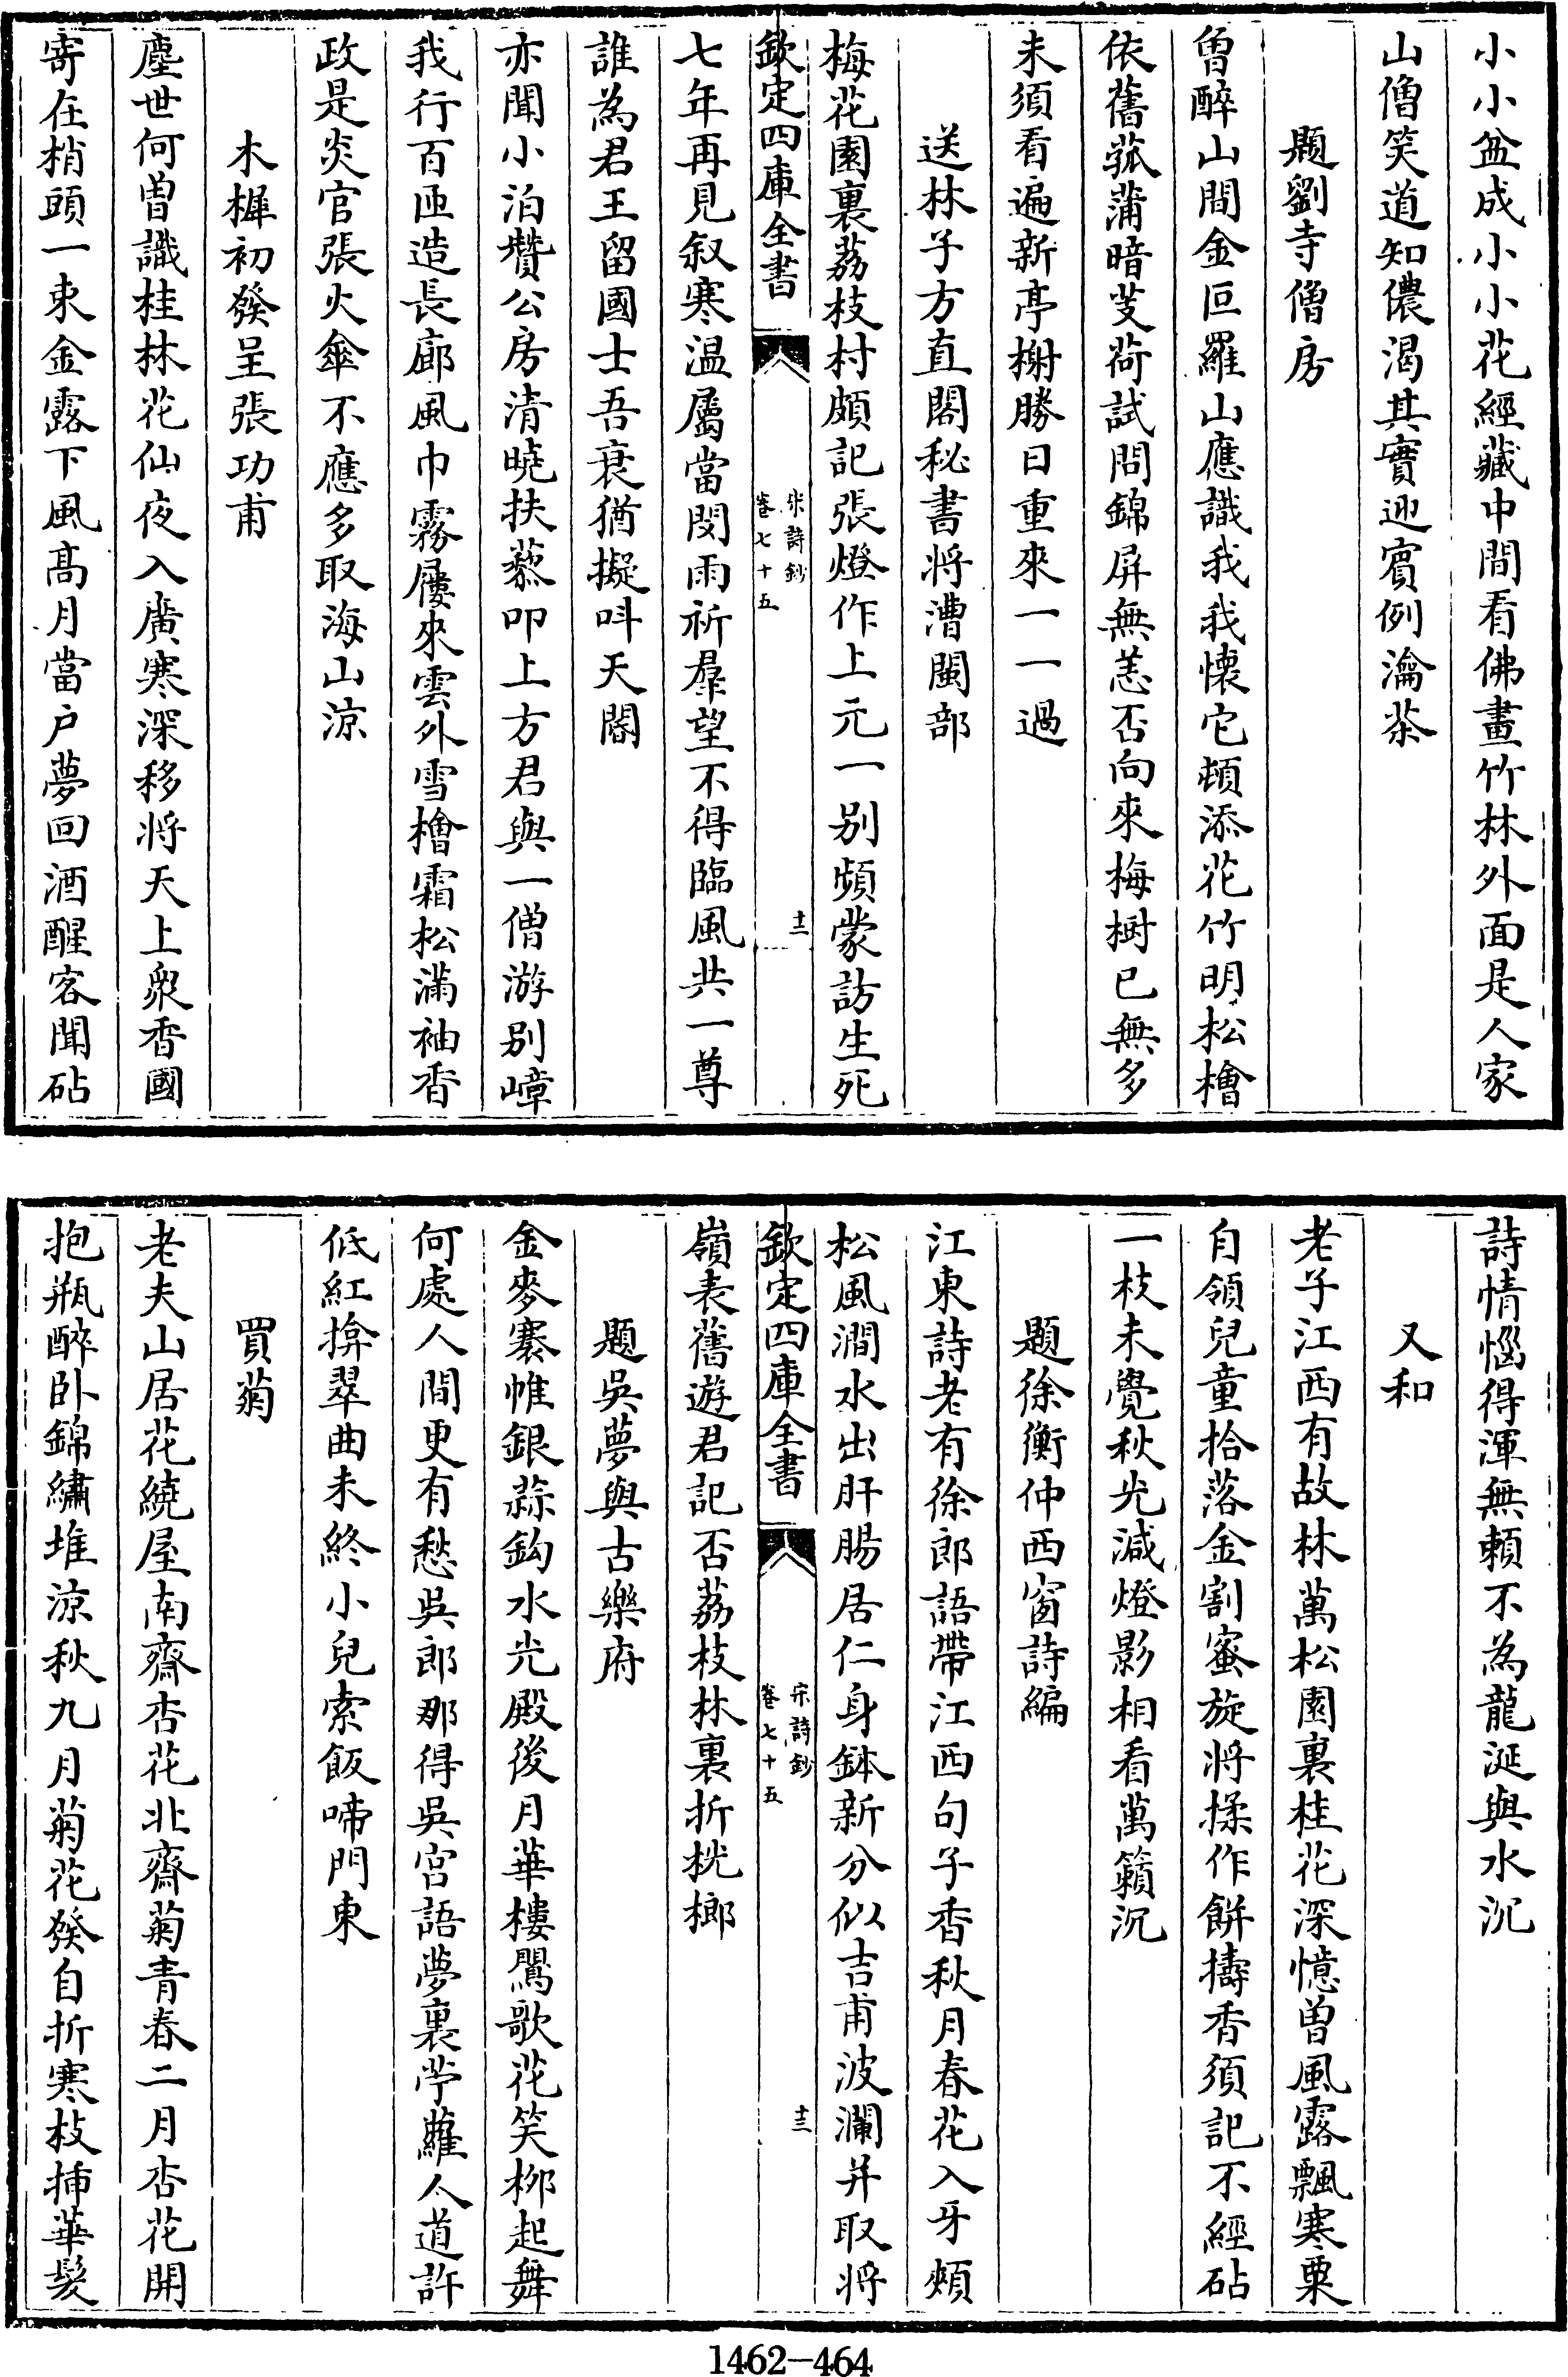 小小盆成小小花經藏中間看佛畫竹林外面是人家
山僧笑道知儂渴其實迎賓例瀹茶
題劉寺僧房
曾醉山間金叵羅山應識我我懷它頓添花竹明松檜
依舊菰蒲暗芰荷試問錦屏無恙否向來梅樹已無多
未須看遍新亭榭勝日重來一一過
送林子方直閣秘書將漕閩部
梅花園裏荔枝村頗記張燈作上元一别頻蒙訪生死
欽定四庫全書
宋詩鈔
卷七十五
十二
七年再見叙寒温屬當閔雨祈羣望不得臨風共一尊
誰為君王留國士吾衰猶擬呌天閽
亦聞小泊贊公房清曉扶藜叩上方君與一僧游别嶂
我行百匝造長廊風巾霧屨來雲外雪檜霜松滿袖香
政是炎官張火傘不應多取海山凉
木樨初發呈張功甫
塵世何曽識桂林花仙夜入廣寒深移將天上衆香國
寄在梢頭一朿金露下風髙月當户夢回酒醒客聞砧
詩情惱得渾無賴不為龍涎與水沉
又和
老子江西有故林萬松園裏桂花深憶曽風露飄寒粟
自領兒童拾落金割蜜旋將揉作餅擣香須記不經砧
一枝未覺秋光減燈影相看萬籟沉
題徐衡仲西窗詩編
江東詩老有徐郎語帶江西句子香秋月春花入牙頰
松風澗水出肝腸居仁身鉢新分似吉甫波瀾并取將
欽定四庫全書
宋詩鈔
卷七十五
十三
嶺表舊遊君記否荔枝林裏折桄榔
題吳夢與古樂府
金麥褰帷銀蒜鈎水光殿後月華樓鶯歌花笑栁起舞
何處人間更有愁吳郎那得吳宮語夢裏苧蘿人道許
低紅揜翠曲未終小兒索飯啼門東
買菊
老夫山居花繞屋南齋杏花北齋菊青春二月杏花開
抱瓶醉卧錦繡堆凉秋九月菊花發自折寒枝揷華髮
1462-464